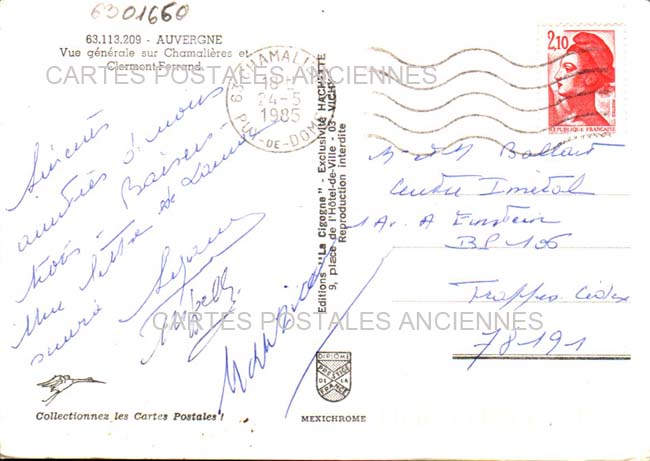 6301660
63.113.209 - AUVERGNE
Vue générale sur Chamalières et
Clermont-Ferrand
CARTES POSTALES ANCIENNES
63 CHAMALI
18 H
24-5
1985
PUY-DE-DOME
2,10
REPUBLIQUE FRANÇAISE
Sincères
amitiés à vous
tous. Baisers
Une lettre de
suivra
Editions "La Cigogne" - Exclusivité HACHETTE
9, place de l'Hôtel-de-Ville - 03 - VICHY
Reproduction interdite
Centre Imétal
1 Av. A Einstein
BP 106
Trappes Cédex
78191
CARTES POSTALES ANCIENNES
DIPLOME
PRESTIGE
DE LA
FRANCE
Collectionnez les Cartes Postales !
MEXICHROME